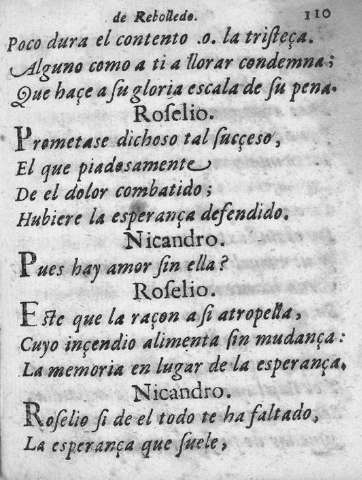 de Rebolledo. 110
Poco dura el contento .o. la tristeça.
Alguno como a ti a llorar condemna;
Que haçe a su gloria escala de su pena.
Roselio.
Prometase dichoso tal sucçeso,
El que piadosamente
De el dolor combatido;
Hubiere la esperança defendido.
Nicandro.
Pues hay amor sin ella?
Roselio.
Este que la raçon a si atropella,
Cuyo inçendio alimenta sin mudança:
La memoria en lugar de la esperança.
Nicandro.
Roselio si de el todo te ha faltado,
La esperança que suele,